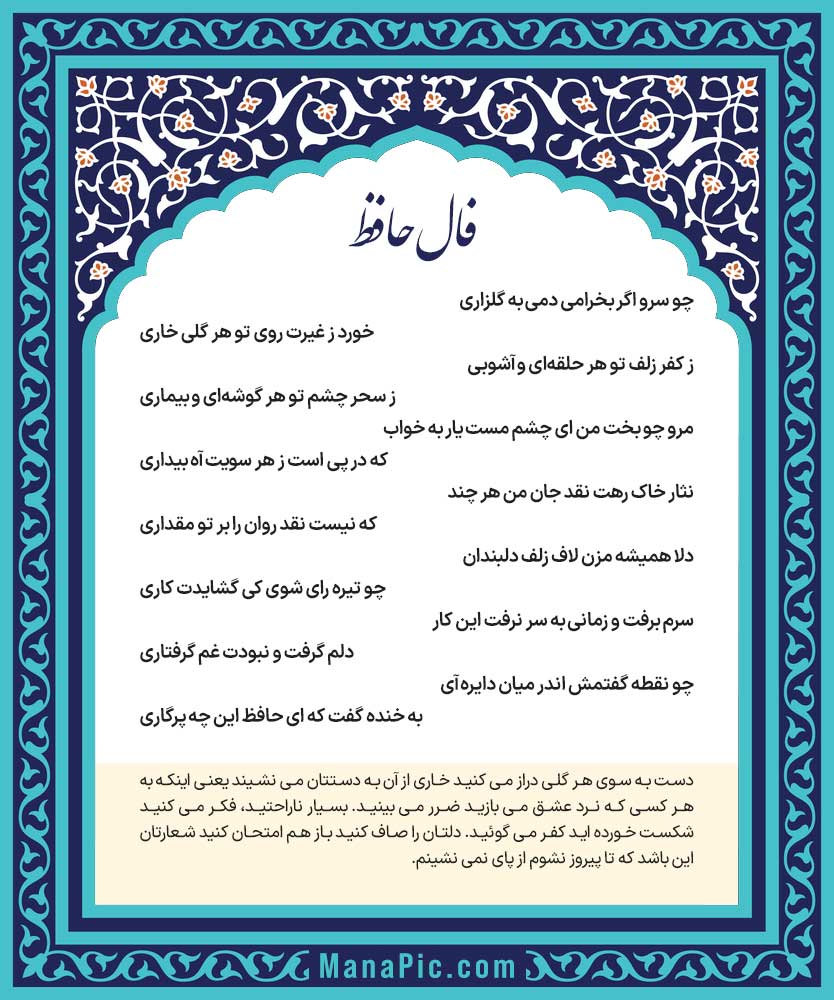 فال حافظ
چو سرو اگر بخرامی دمی به گلزاری
خورد ز غیرت روی تو هر گلی خاری
ز کفر زلف تو هر حلقه‌ای و آشوبی
ز سحر چشم تو هر گوشه‌ای و بیماری
مرو چو بخت من ای چشم مست یار به خواب
که در پی است ز هر سویت آه بیداری
نثار خاک رهت نقد جان من هر چند
که نیست نقد روان را بر تو مقداری
دلا همیشه مزن لاف زلف دلبندان
چو تیره رای شوی کی گشایدت کاری
سرم برفت و زمانی به سر نرفت این کار
دلم گرفت و نبودت غم گرفتاری
چو نقطه گفتمش اندر میان دایره آی
به خنده گفت که ای حافظ این چه پرگاری
دست به سوی هر گلی دراز می کنید خاری از آن به دستتان می نشیند یعنی اینکه به
هر کسی که نرد عشق می بازید ضرر می بینید. بسیار ناراحتید، فکر می کنید
شکست خورده اید کفر می گوئید. دلتان را صاف کنید باز هم امتحان کنید شعارتان
این باشد که تا پیروز نشوم از پای نمی نشینم.
ManaPic.com